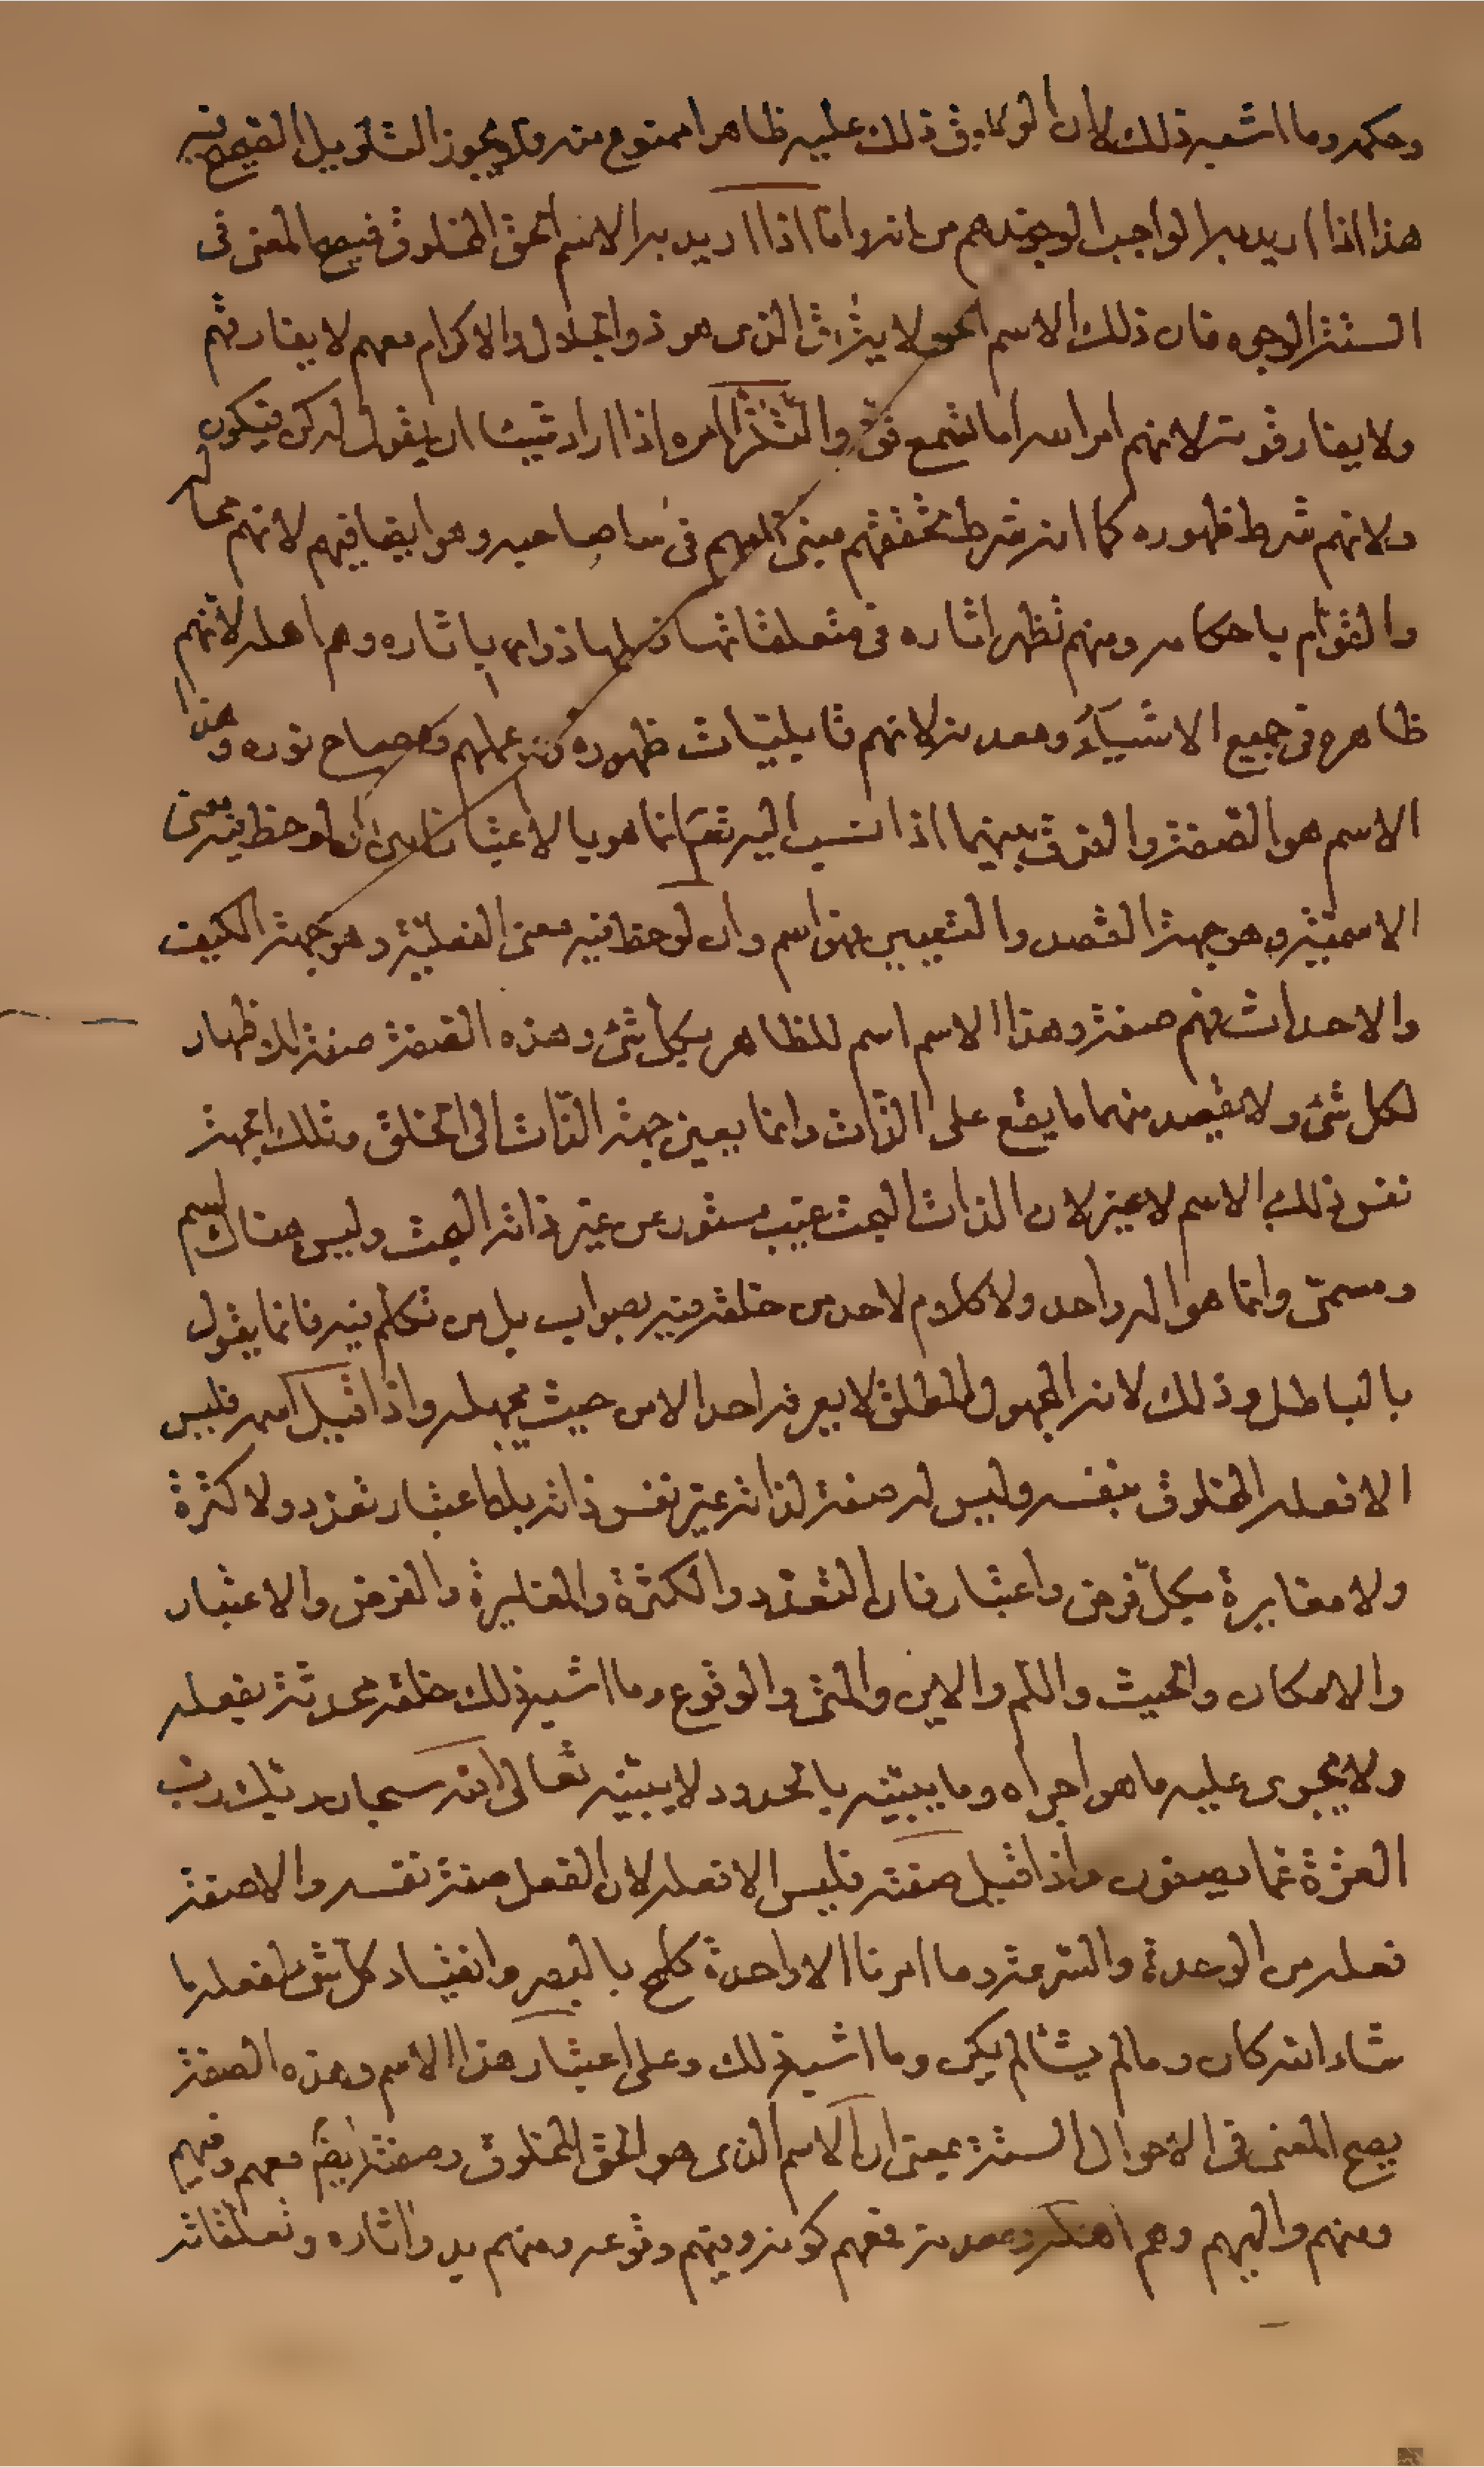 وحكمه وما اشبه ذلك لان الولاوق ذلك عليه ظاهرا ممنوع منه وقد يجوز التاويل الصحيح فيه
هذا اذا اريد به الواجب الوجود هم من انه واما اذا اريد به الاسم الحق المخلوق فيصح المعنى فى
الستة الوجوه فان ذلك الاسم الحق لا يفارق الذى هو ذو الجلال والاكرام معهم لا يفارقهم
ولا يفارقونه لانهم امر الله اما تسمع قوله انما امره اذا اراد شيئا ان يقول له كن فيكون
ولانهم شرط ظهوره كما انه شرط تحققهم فهو معهم فى صاحبه وهو ايضا فيهم لانهم محاله
والقوام باحكامه ومنهم تظهر اثاره فى متعلقاتها باثاره وهم اهله لانهم
ظاهره فى جميع الاشياء ومعدنه لانهم قابليات ظهوره كمصباح نوره وهذا
الاسم هو الصفة والفرق بينهما اذا نسب اليه تعالى انما هو بالاعتبار ان لوحظ فيه معنى
الاسمية وهو جهة القصد والتعيين فهو اسم وان لوحظ فيه معنى الفعلية وهو جهة الكيف
والاحداث فهم صفة وهذا الاسم اسم للظاهر بكل شئ وهذه الصفة صفة الاظهار
لكل شئ ولا يقصد منهما ما يقع على الذات وانما يعين جهة الذات الى الخلق وتلك الجهة
نفس ذلك الاسم لا غير لان الذات البحت غيب مستور عن غير ذاته البحت وليس هناك اسم
ومسمى وانما هو اله واحد ولا كلام لاحد من خلقه فيه بصواب بل من تكلم فيه فانما يقول
بالباطل وذلك لانه المجهول المطلق لا يعرفه احد الا من حيث يجهله واذا قيل اسمه فليس
الا فعله المخلوق بنفسه وليس له صفة لذاته غير نفس ذاته بلا اعتبار تعدد ولا كثرة
ولا مغايرة بكل فرض واعتبار فان التعدد والكثرة والمغايرة والفرض والاعتبار
والامكان والحيث واللم والاين والمتى والوقوع وما اشبه ذلك خلقه محدثة بفعله
ولا يجرى عليه ما هو اجراه وما يبينه بالحدود لا يبينه تعالى الله سبحان ربك رب
العزة عما يصفون واذا قيل صفته فليس الا فعله لان الفعل صفة نفسه والا صفة
فعله من الوحدة والسرعة وما امرنا الا واحدة كلمح بالبصر وانقياد كل شئ لفعله ما
شاء الله كان وما لم يشأ لم يكن وما اشبه ذلك وعلى اعتبار هذا الاسم وهذه الصفة
يصح المعنى فى الاحوال الستة بمعنى ان الاسم الذى هو الحق المخلوق وصفته ايضا معهم وفيهم
ومنهم واليهم وهم اهله ومعدنه فمعهم كونه وفيهم وقوعه ومنهم بدو اثاره وتعلقاته